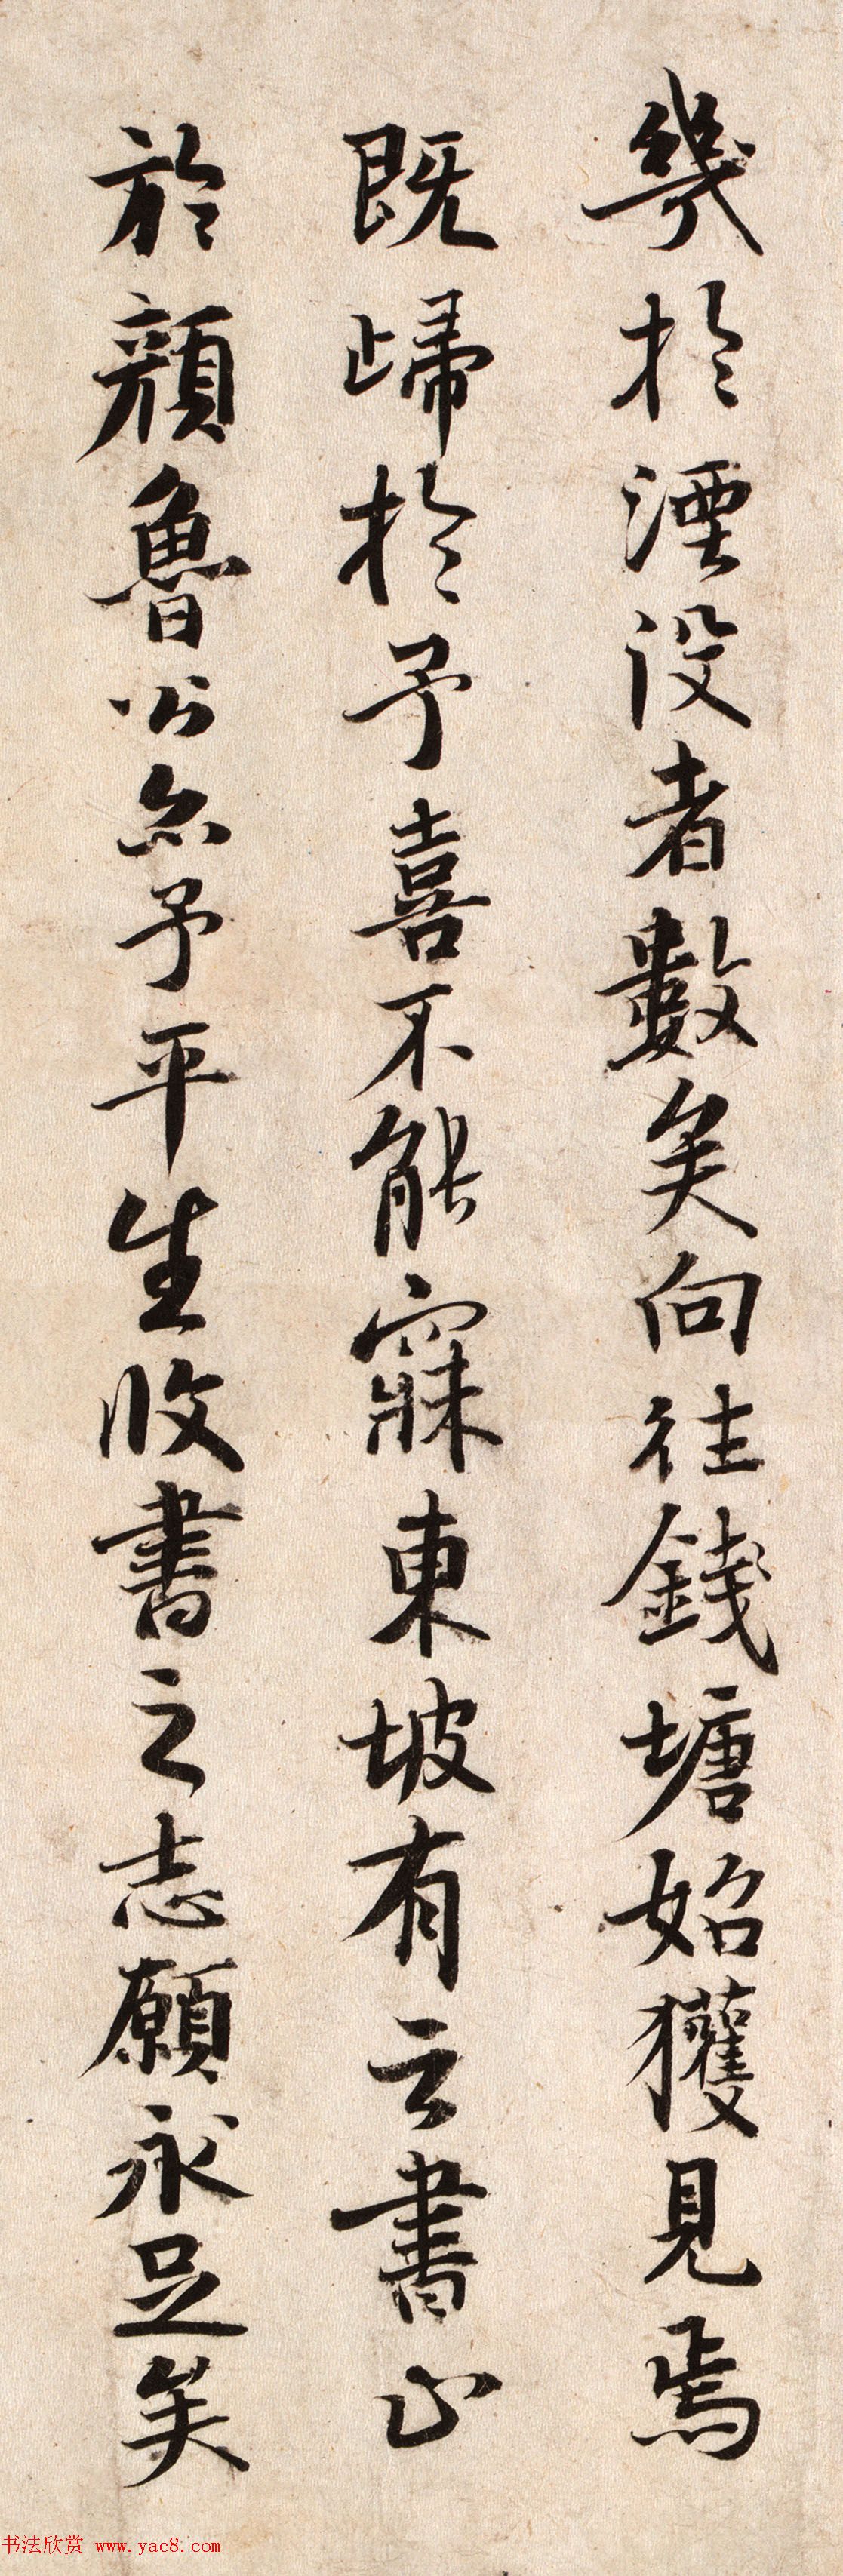 幾於湮没者數矣向往錢塘始獲見焉
既歸於予喜不能寐東坡有云書止
於顔魯公亦予平生收書之志願永足矣
书法欣赏 www.yac8.com